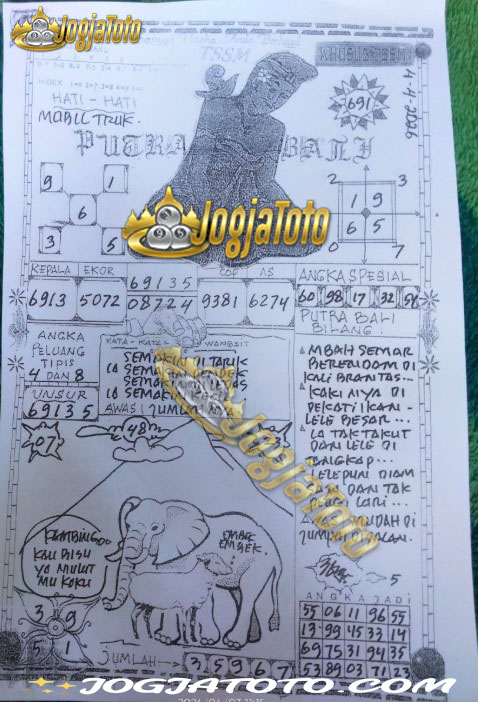 JogjaToto
TSSM
4-4-2026
HATI - HATI
MOBIL TRUK.
691
PUTRA BALI
9 1
6
3 5
2 3
1 9
6 5
0 7
JogjaToto
KEPALA EKOR
69135
COP AS
ANGKA SPESIAL
6913 5072 08724 9381 6274
60 98 17 32 54
ANGKA
PELUANG
TIPIS
4 DAN 8
UNSUR
69135
KATA - KATA WANGSIT
SEMAKIN DI TARIK
SEMAKIN PENDEK
SEMAKIN
SEMAKIN
AWAS! JUMLAH NYA
PUTRA BALI
BILANG:
MBAH SEMAR
BERENDAM DI
KALI BRANTAS...
KAKI NYA DI
DEKATI IKAN-
LELE BESAR...
IA TAK TAKUT
DAN LELE DI
TANGKAP...
LELEPUN DIAM
DAN TAK
LARI...
MUDAH DI
JUMPAI DI JALAN.
07
48
JogjaToto
KAMBING
KAU BISU
YA MULUT
MU KAKU
EMBEK
EMBEK.
3 9
5 1
5
ANGKA JADI
55 06 11 96 55
13 99 45 33 14
69 75 31 94 35
53 89 03 71 23
JUMLAH
3 5 9 6 7
JOGJATOTO.COM